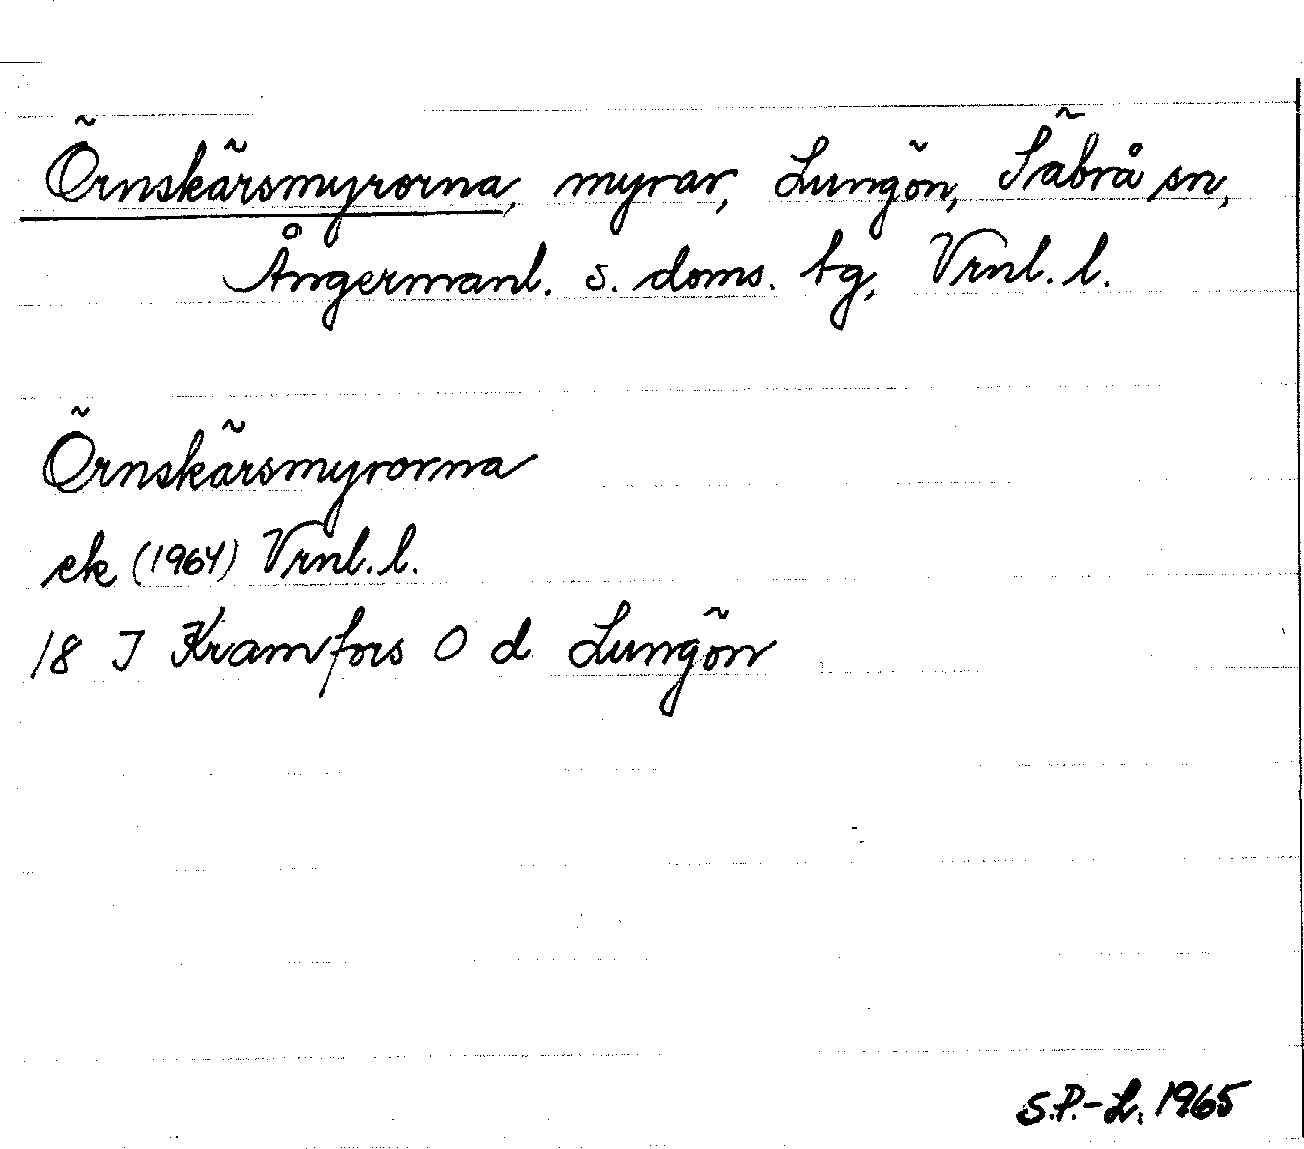 Örnskärsmyrorna, myrar, Lungön, Säbrå sn,
Ångermanl. s. doms. tg, Vrnl. l.
Örnskärsmyrorna
ek (1964) Vrnl. l.
18 J Kramfors O d Lungön
S.P.-L. 1965